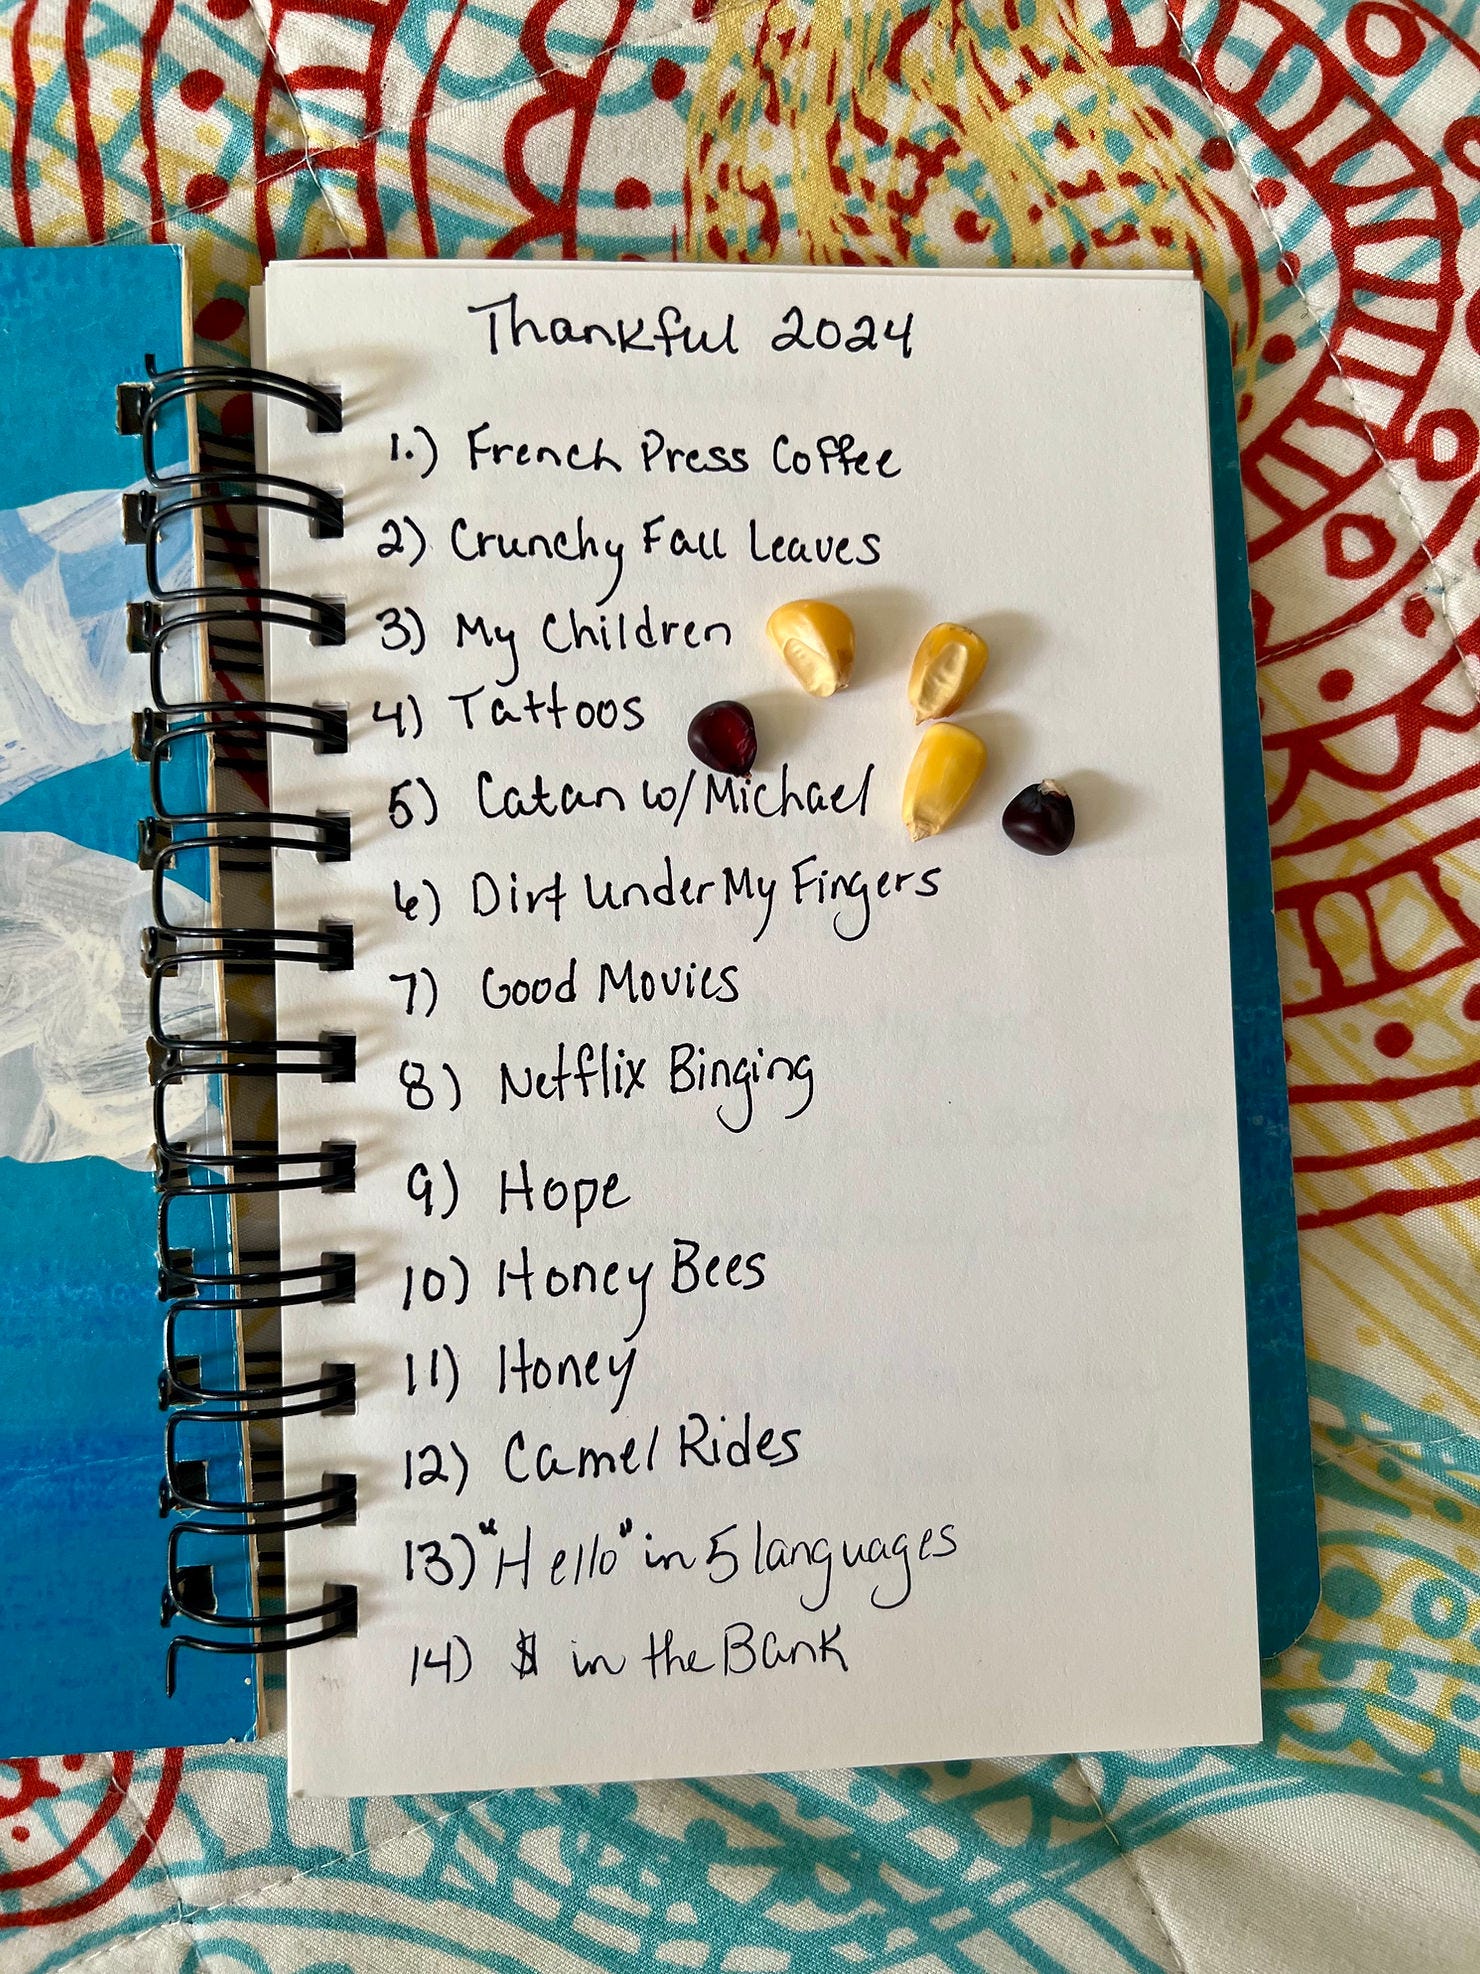 Thankful 2024
1.) French Press Coffee
2) Crunchy Fall Leaves
3) My Children
4) Tattoos
5) Catan w/Michael
6) Dirt Under My Fingers
7) Good Movies
8) Netflix Binging
9) Hope
10) Honey Bees
11) Honey
12) Camel Rides
13) "Hello" in 5 languages
14) $ in the Bank